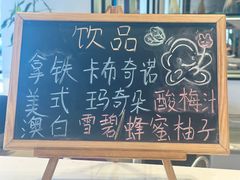 饮品
拿铁 卡布奇诺
美式 玛奇朵 酸梅汁
澳白 雪碧 蜂蜜柚子